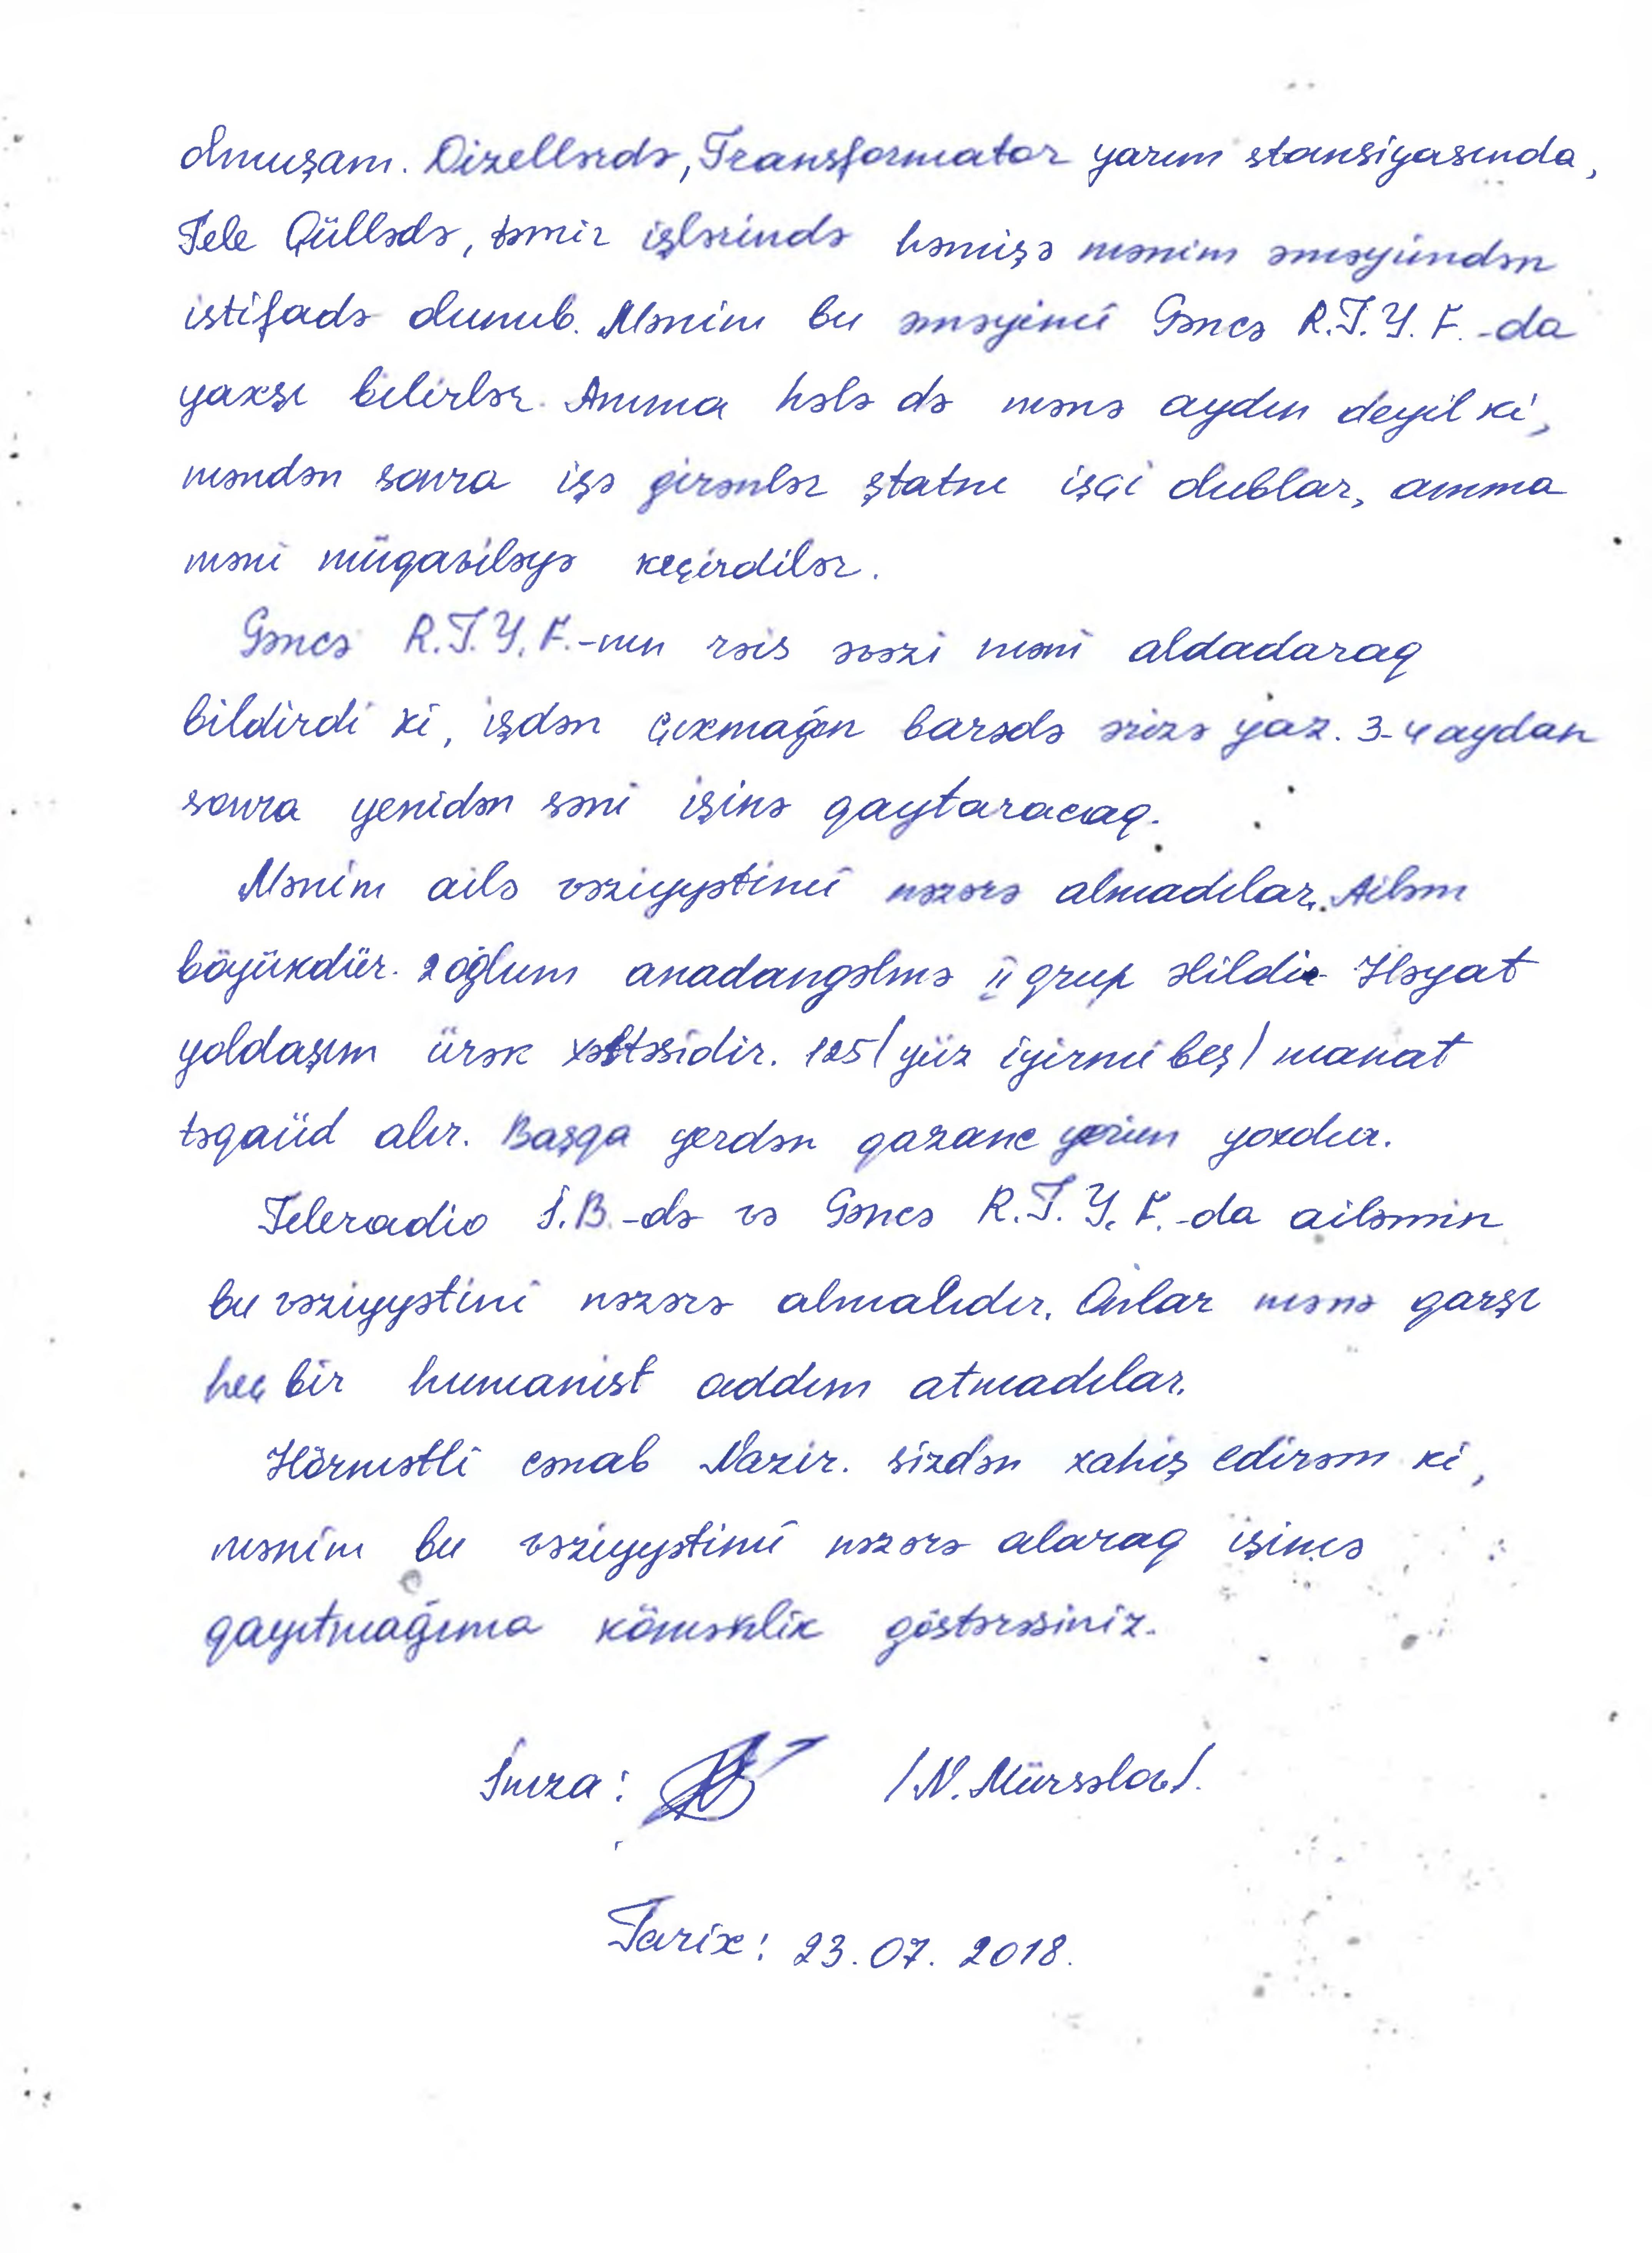 olmuşam. Dizellərdə, Transformator yarım stansiyasında,
Tele Qüllədə, təmir işlərində həmişə mənim əməyimdən
istifadə olunub. Mənim bu əməyimi Gəncə R.T.Y.F.-da
yaxşı bilirlər. Amma hələ də mənə aydın deyil ki,
məndən sonra işə girənlər ştatnı işçi olublar, amma
məni müqaviləyə keçirdilər.
Gəncə R.T.Y.F.-nın rəis əvəzi məni aldadaraq
bildirdi ki, işdən çıxmağın barədə ərizə yaz. 3-4 aydan
sonra yenidən səni işinə qaytaracaq.
Mənim ailə vəziyyətimi nəzərə almadılar. Ailəm
böyükdür. 2 oğlum anadangəlmə II qrup əlildir Həyat
yoldaşım ürək xəstəsidir. 125/yüz iyirmi beş/ manat
təqaüd alır. Başqa yerdən qazanc yerim yoxdur.
Teleradio İ.B.-də və Gəncə R.T.Y.F.-da ailəmin
bu vəziyyətini nəzərə almalıdır. Onlar mənə qarşı
heç bir humanist addım atmadılar.
Hörmətli cənab Nazir. sizdən xahiş edirəm ki,
mənim bu vəziyyətimi nəzərə alaraq işimə
qayıtmağıma köməklik göstərəsiniz.
İmza: /N. Mürsəlov/.
Tarix: 23.07.2018.